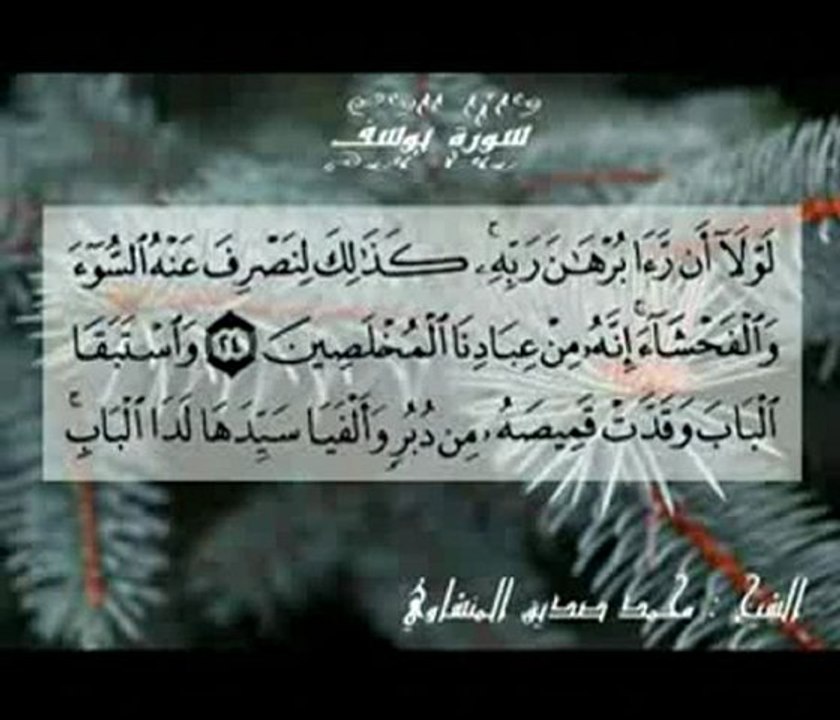 سورة يوسف
لَوْلَآ أَن رَّءَا بُرْهَـٰنَ رَبِّهِۦ ۚ كَذَٰلِكَ لِنَصْرِفَ عَنْهُ ٱلسُّوٓءَ
وَٱلْفَحْشَآءَ ۚ إِنَّهُۥ مِنْ عِبَادِنَا ٱلْمُخْلَصِينَ ٢٤ وَٱسْتَبَقَا
ٱلْبَابَ وَقَدَّتْ قَمِيصَهُۥ مِن دُبُرٍ وَأَلْفَيَا سَيِّدَهَا لَدَا ٱلْبَابِ ۚ
الشيخ : محمد صديق المنشاوي